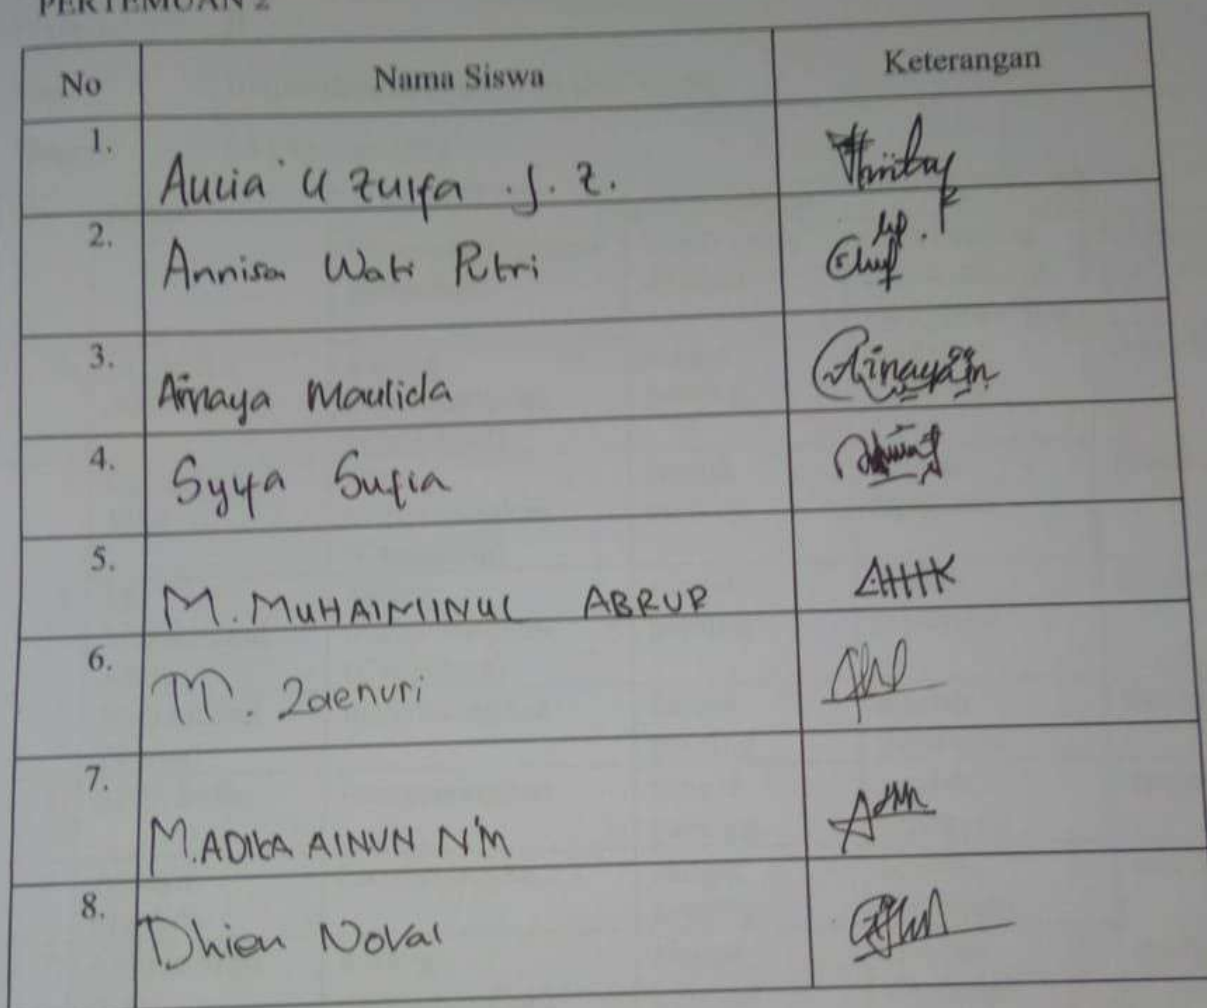 PERTEMUAN 2
No Nama Siswa Keterangan
1. Aulia U Zulfa .J. Z.
2. Annisa Wati Putri
3. Ainaya Maulida Ainaya
4. Syifa Sufia
5. M. MUHAIMINUL ABRUR
6. M. Zaenuri
7. M.ADIKA AINUN N'M
8. Dhien Noval